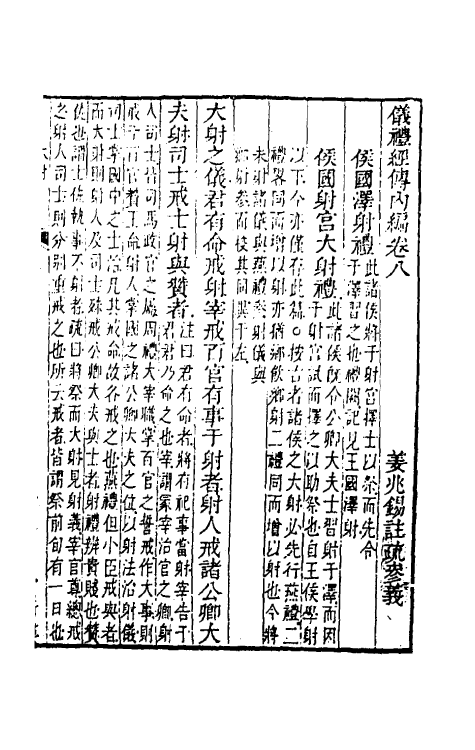 儀禮經傳內編卷八
姜兆錫註疏參義
侯國澤射禮
此諸侯將于射宮擇士以祭而先令
于澤習之也禮闕記見王國澤射
侯國射宮大射禮
此諸侯旣令公卿大夫士習射于澤而因
于射宮試而擇之以助祭也自王侯學射
以下今亦僅存此篇○按古者諸侯之大射必先行燕禮二
禮畧同而增以射亦猶鄉飲鄉射二禮同而增以射也今將
未射諸儀與燕禮射儀與
鄉射參而校其同異于左
大射之儀君有命戒射宰戒百官有事于射者射人戒諸公卿大
夫射司士戒士射與贊者
注曰君有命者將有祀事當射宰告于
君君乃命之也宰謂冡宰治官之卿射
人司士皆司馬政官之屬周禮大宰職掌百官之誓戒作大事則
戒于百官贊王命射人掌國之諸公卿大夫之位以射法治射儀
司士掌國中之士治凡其戒命故各戒之也燕禮但小臣戒與者
而大射則射人及司士殊戒公卿大夫與士者射禮辨貴賤也贊
佐也謂士佐執事不射者疏曰將祭而大射見射義宰官尊總戒
之射人司士則分别重戒之也所云戒者皆謂祭前旬有一日也